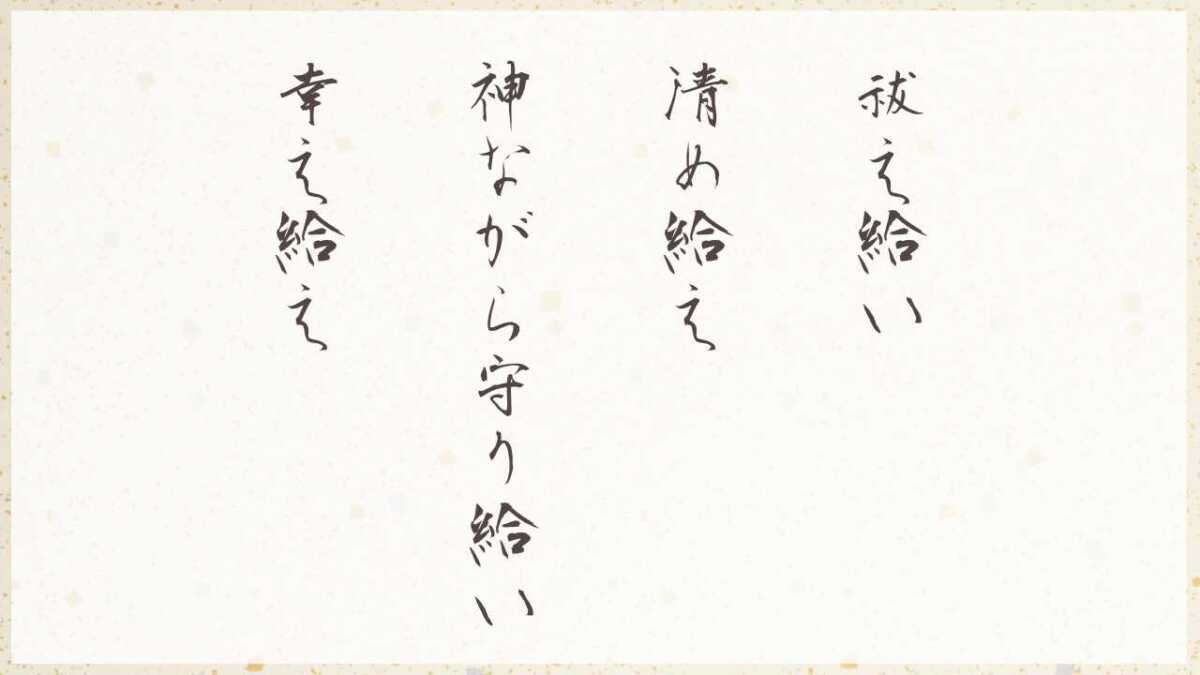 祓え給い
清め給え
神ながら守り給い
幸え給え